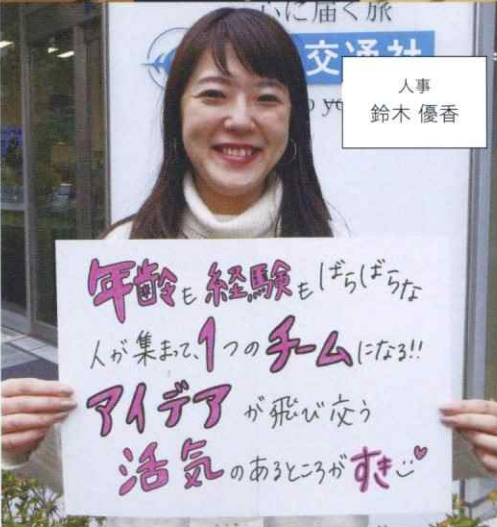 いに届く旅
交通社
人事
鈴木 優香
年齢も経験もばらばらな
人が集まって、1つのチームになる!!
アイデアが飛び交う
活気のあるところがすき